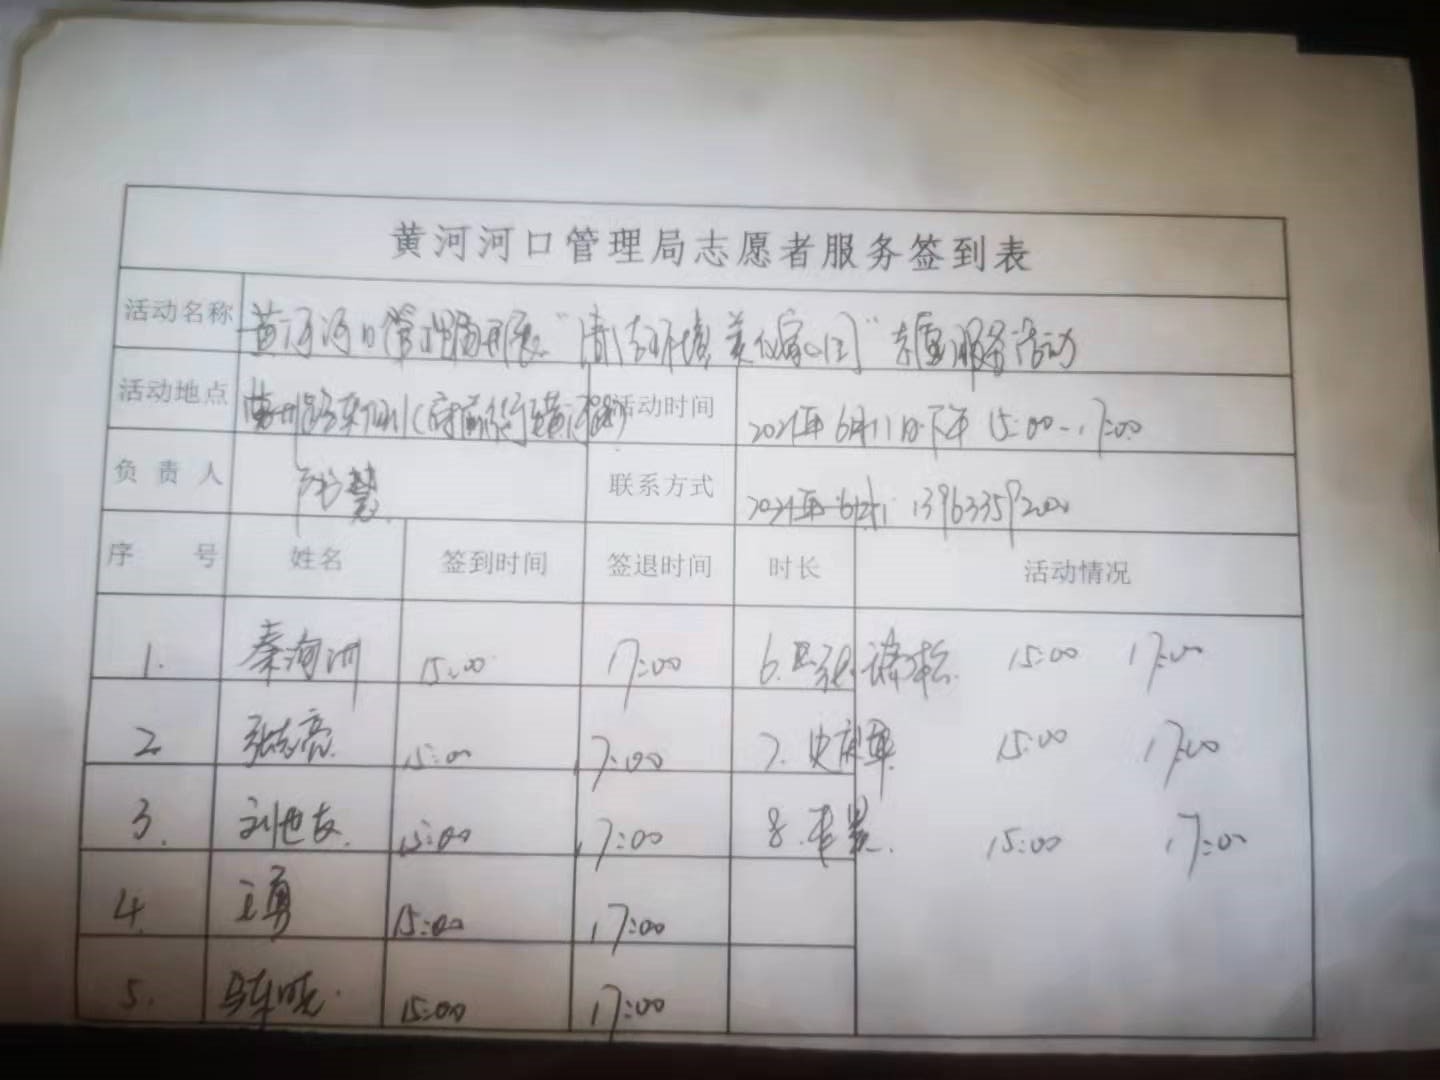 黄河河口管理局志愿者服务签到表
活动名称 黄河河口管理局开展“清洁环境 美化家园”志愿服务活动
活动地点 活动时间 2021年6月11日下午 15:00-17:00
负责人 慧 联系方式 13963359200
序号 姓名 签到时间 签退时间 时长 活动情况
1. 秦洵洲 15:00 17:00 6. 15:00 17:00
2 张志亮 15:00 17:00 7. 史 15:00 17:00
3. 刘世友 15:00 17:00 8. 15:00 17:00
4. 王勇 15:00 17:00
5. 马 15:00 17:00